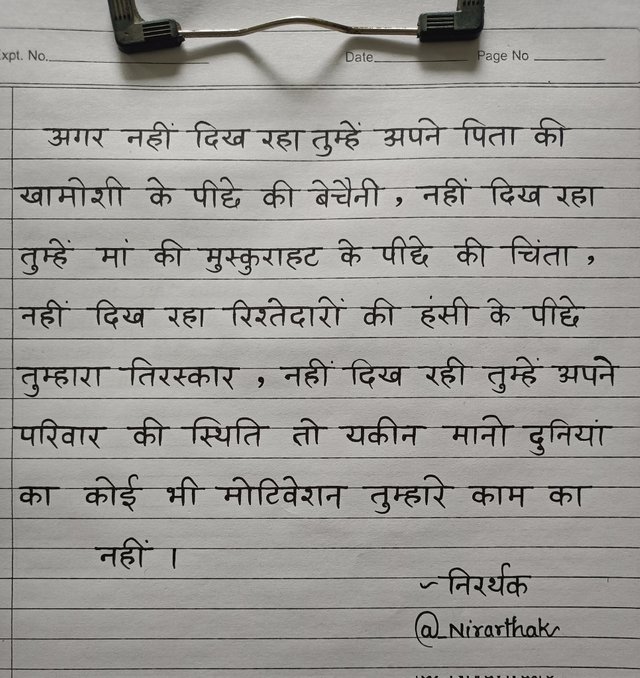 Expt. No.
Date
Page No
अगर नहीं दिख रहा तुम्हें अपने पिता की
खामोशी के पीछे की बेचैनी, नहीं दिख रहा
तुम्हें मां की मुस्कुराहट के पीछे की चिंता,
नहीं दिख रहा रिश्तेदारों की हंसी के पीछे
तुम्हारा तिरस्कार, नहीं दिख रही तुम्हें अपने
परिवार की स्थिति तो यकीन मानो दुनियां
का कोई भी मोटिवेशन तुम्हारे काम का
नहीं ।
~ निरर्थक
@_Nirarthak